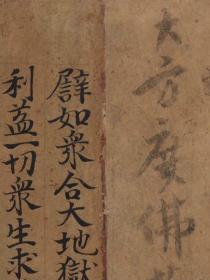 大方廣佛
譬如眾合大地獄
利益一切眾生求